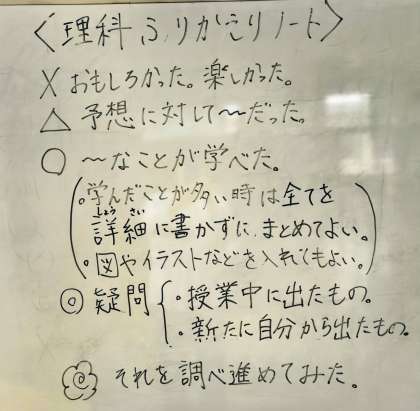 〈理科ふりかえりノート〉
✕おもしろかった。楽しかった。
△予想に対して〜だった。
○〜なことが学べた。
(・学んだことが多い時は全てを
詳細に書かずに、まとめてよい。
しょうさい
・図やイラストなどを入れてもよい。)
◎疑問{・授業中に出たもの。
・新たに自分から出たもの。
それを調べ進めてみた。